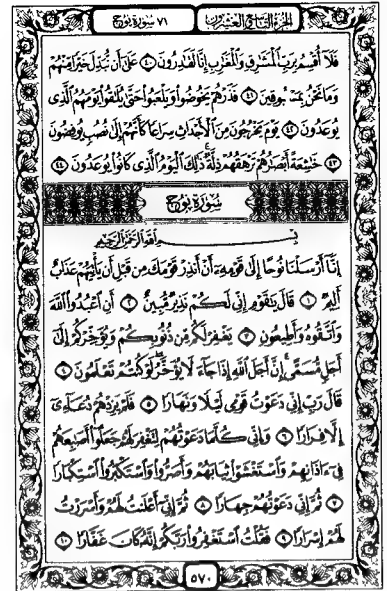 الجزء التاسع العشرون ٧١ سورة نوح
فَلَا أُقْسِمُ بِرَبِّ الْمَشَارِقِ وَالْمَغَارِبِ إِنَّا لَقَادِرُونَ ٤٠ عَلَى أَن نُّبَدِّلَ خَيْرًا مِّنْهُمْ
وَمَا نَحْنُ بِمَسْبُوقِينَ ٤١ فَذَرْهُمْ يَخُوضُوا وَيَلْعَبُوا حَتَّى يُلَاقُوا يَوْمَهُمُ الَّذِي
يُوعَدُونَ ٤٢ يَوْمَ يَخْرُجُونَ مِنَ الْأَجْدَاثِ سِرَاعًا كَأَنَّهُمْ إِلَى نُصُبٍ يُوفِضُونَ
٤٣ خَاشِعَةً أَبْصَارُهُمْ تَرْهَقُهُمْ ذِلَّةٌ ذَلِكَ الْيَوْمُ الَّذِي كَانُوا يُوعَدُونَ ٤٤
سُورَةُ نُوحٍ
بِسْمِ اللَّهِ الرَّحْمَنِ الرَّحِيمِ
إِنَّا أَرْسَلْنَا نُوحًا إِلَى قَوْمِهِ أَنْ أَنذِرْ قَوْمَكَ مِن قَبْلِ أَن يَأْتِيَهُمْ عَذَابٌ
أَلِيمٌ ١ قَالَ يَا قَوْمِ إِنِّي لَكُمْ نَذِيرٌ مُّبِينٌ ٢ أَنِ اعْبُدُوا اللَّهَ
وَاتَّقُوهُ وَأَطِيعُونِ ٣ يَغْفِرْ لَكُم مِّن ذُنُوبِكُمْ وَيُؤَخِّرْكُمْ إِلَى
أَجَلٍ مُّسَمًّى إِنَّ أَجَلَ اللَّهِ إِذَا جَاءَ لَا يُؤَخَّرُ لَوْ كُنتُمْ تَعْلَمُونَ ٤
قَالَ رَبِّ إِنِّي دَعَوْتُ قَوْمِي لَيْلًا وَنَهَارًا ٥ فَلَمْ يَزِدْهُمْ دُعَائِي
إِلَّا فِرَارًا ٦ وَإِنِّي كُلَّمَا دَعَوْتُهُمْ لِتَغْفِرَ لَهُمْ جَعَلُوا أَصَابِعَهُمْ
فِي آذَانِهِمْ وَاسْتَغْشَوْا ثِيَابَهُمْ وَأَصَرُّوا وَاسْتَكْبَرُوا اسْتِكْبَارًا
٧ ثُمَّ إِنِّي دَعَوْتُهُمْ جِهَارًا ٨ ثُمَّ إِنِّي أَعْلَنتُ لَهُمْ وَأَسْرَرْتُ
لَهُمْ إِسْرَارًا ٩ فَقُلْتُ اسْتَغْفِرُوا رَبَّكُمْ إِنَّهُ كَانَ غَفَّارًا ١٠
٥٧٠